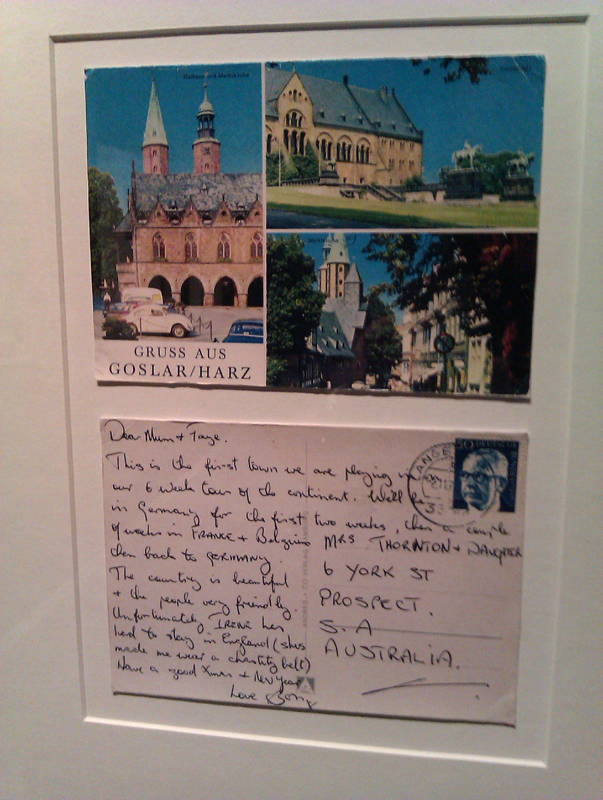 Rathaus und Marktkirche
GRUSS AUS
GOSLAR/HARZ
Dear Mum + Faye.
This is the first town we are playing in on
our 6 week tour of the continent. We'll be
in Germany for the first two weeks, then a couple
of weeks in FRANCE + Belgium
then back to GERMANY.
The country is beautiful
+ the people very friendly.
Unfortunately IRENE has
had to stay in England (shes
made me wear a chastity belt)
Have a good Xmas + New Year
Love Bon
MRS THORNTON + DAUGHTER
6 YORK ST
PROSPECT.
S.A
AUSTRALIA.
30 DEUTSCHE